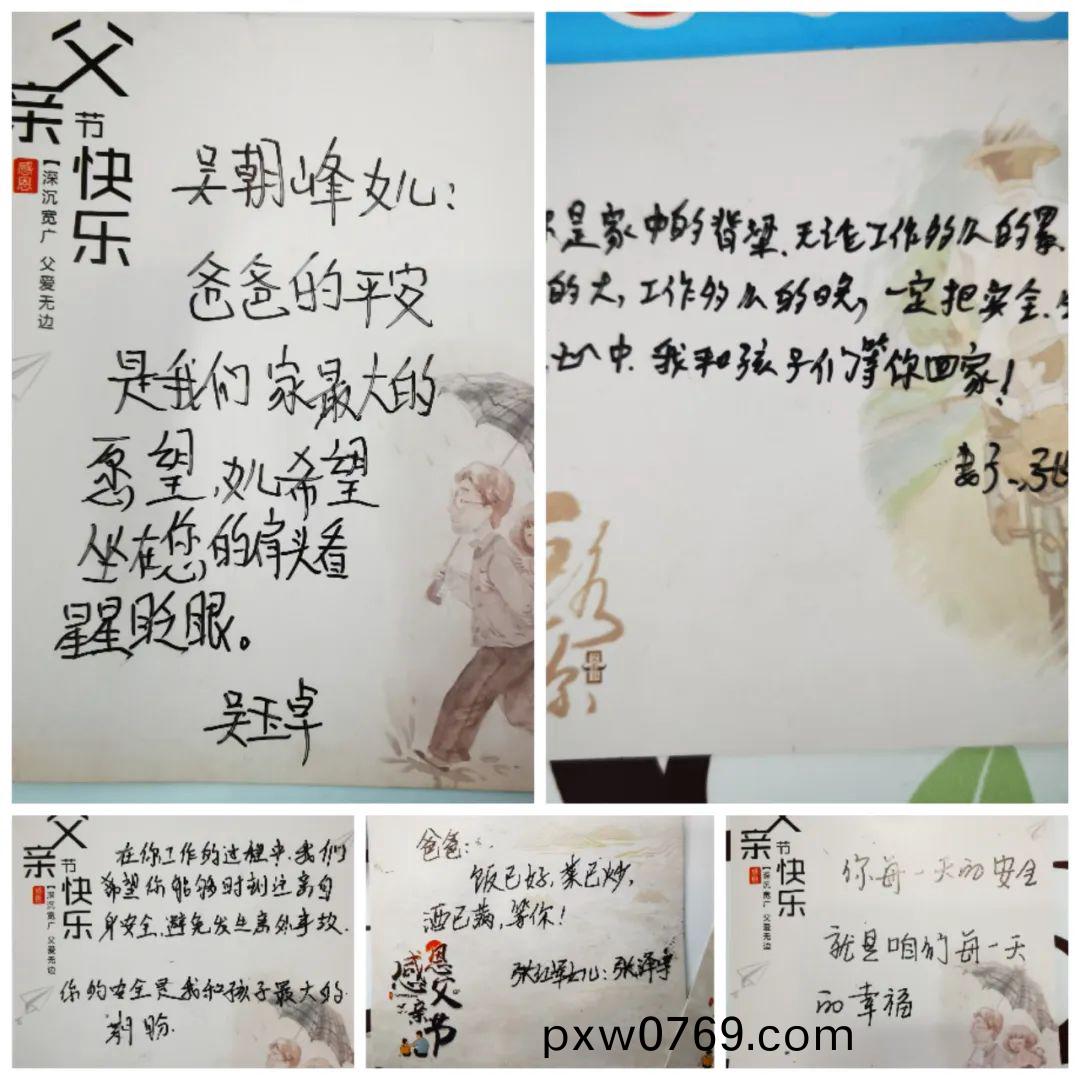 父亲节快乐
感恩
【深沉宽广 父爱无边
吴朝峰女儿:
爸爸的平安
是我们家最大的
愿望,女儿希望
坐在您的肩头看
星星眨眼。
吴玉卓
是家中的脊梁.无论工作的么的累.
的大,工作的么的晚,一定把安全.
中.我和孩子们等你回家!
妻子
父亲节快乐
感恩
【深沉宽广 父爱无边
在你工作的过程中.我们
希望你能够时刻注意自
身安全.避免发生意外事故.
你的安全是我和孩子最大的
期盼.
爸爸:
饭已好,菜已炒,
酒已满,等你!
女儿:张泽宇
感恩父亲节
父亲节快乐
感恩
【深沉宽广 父爱无边
你每一天的安全
就是咱们每一天
的幸福
pxw0769.com